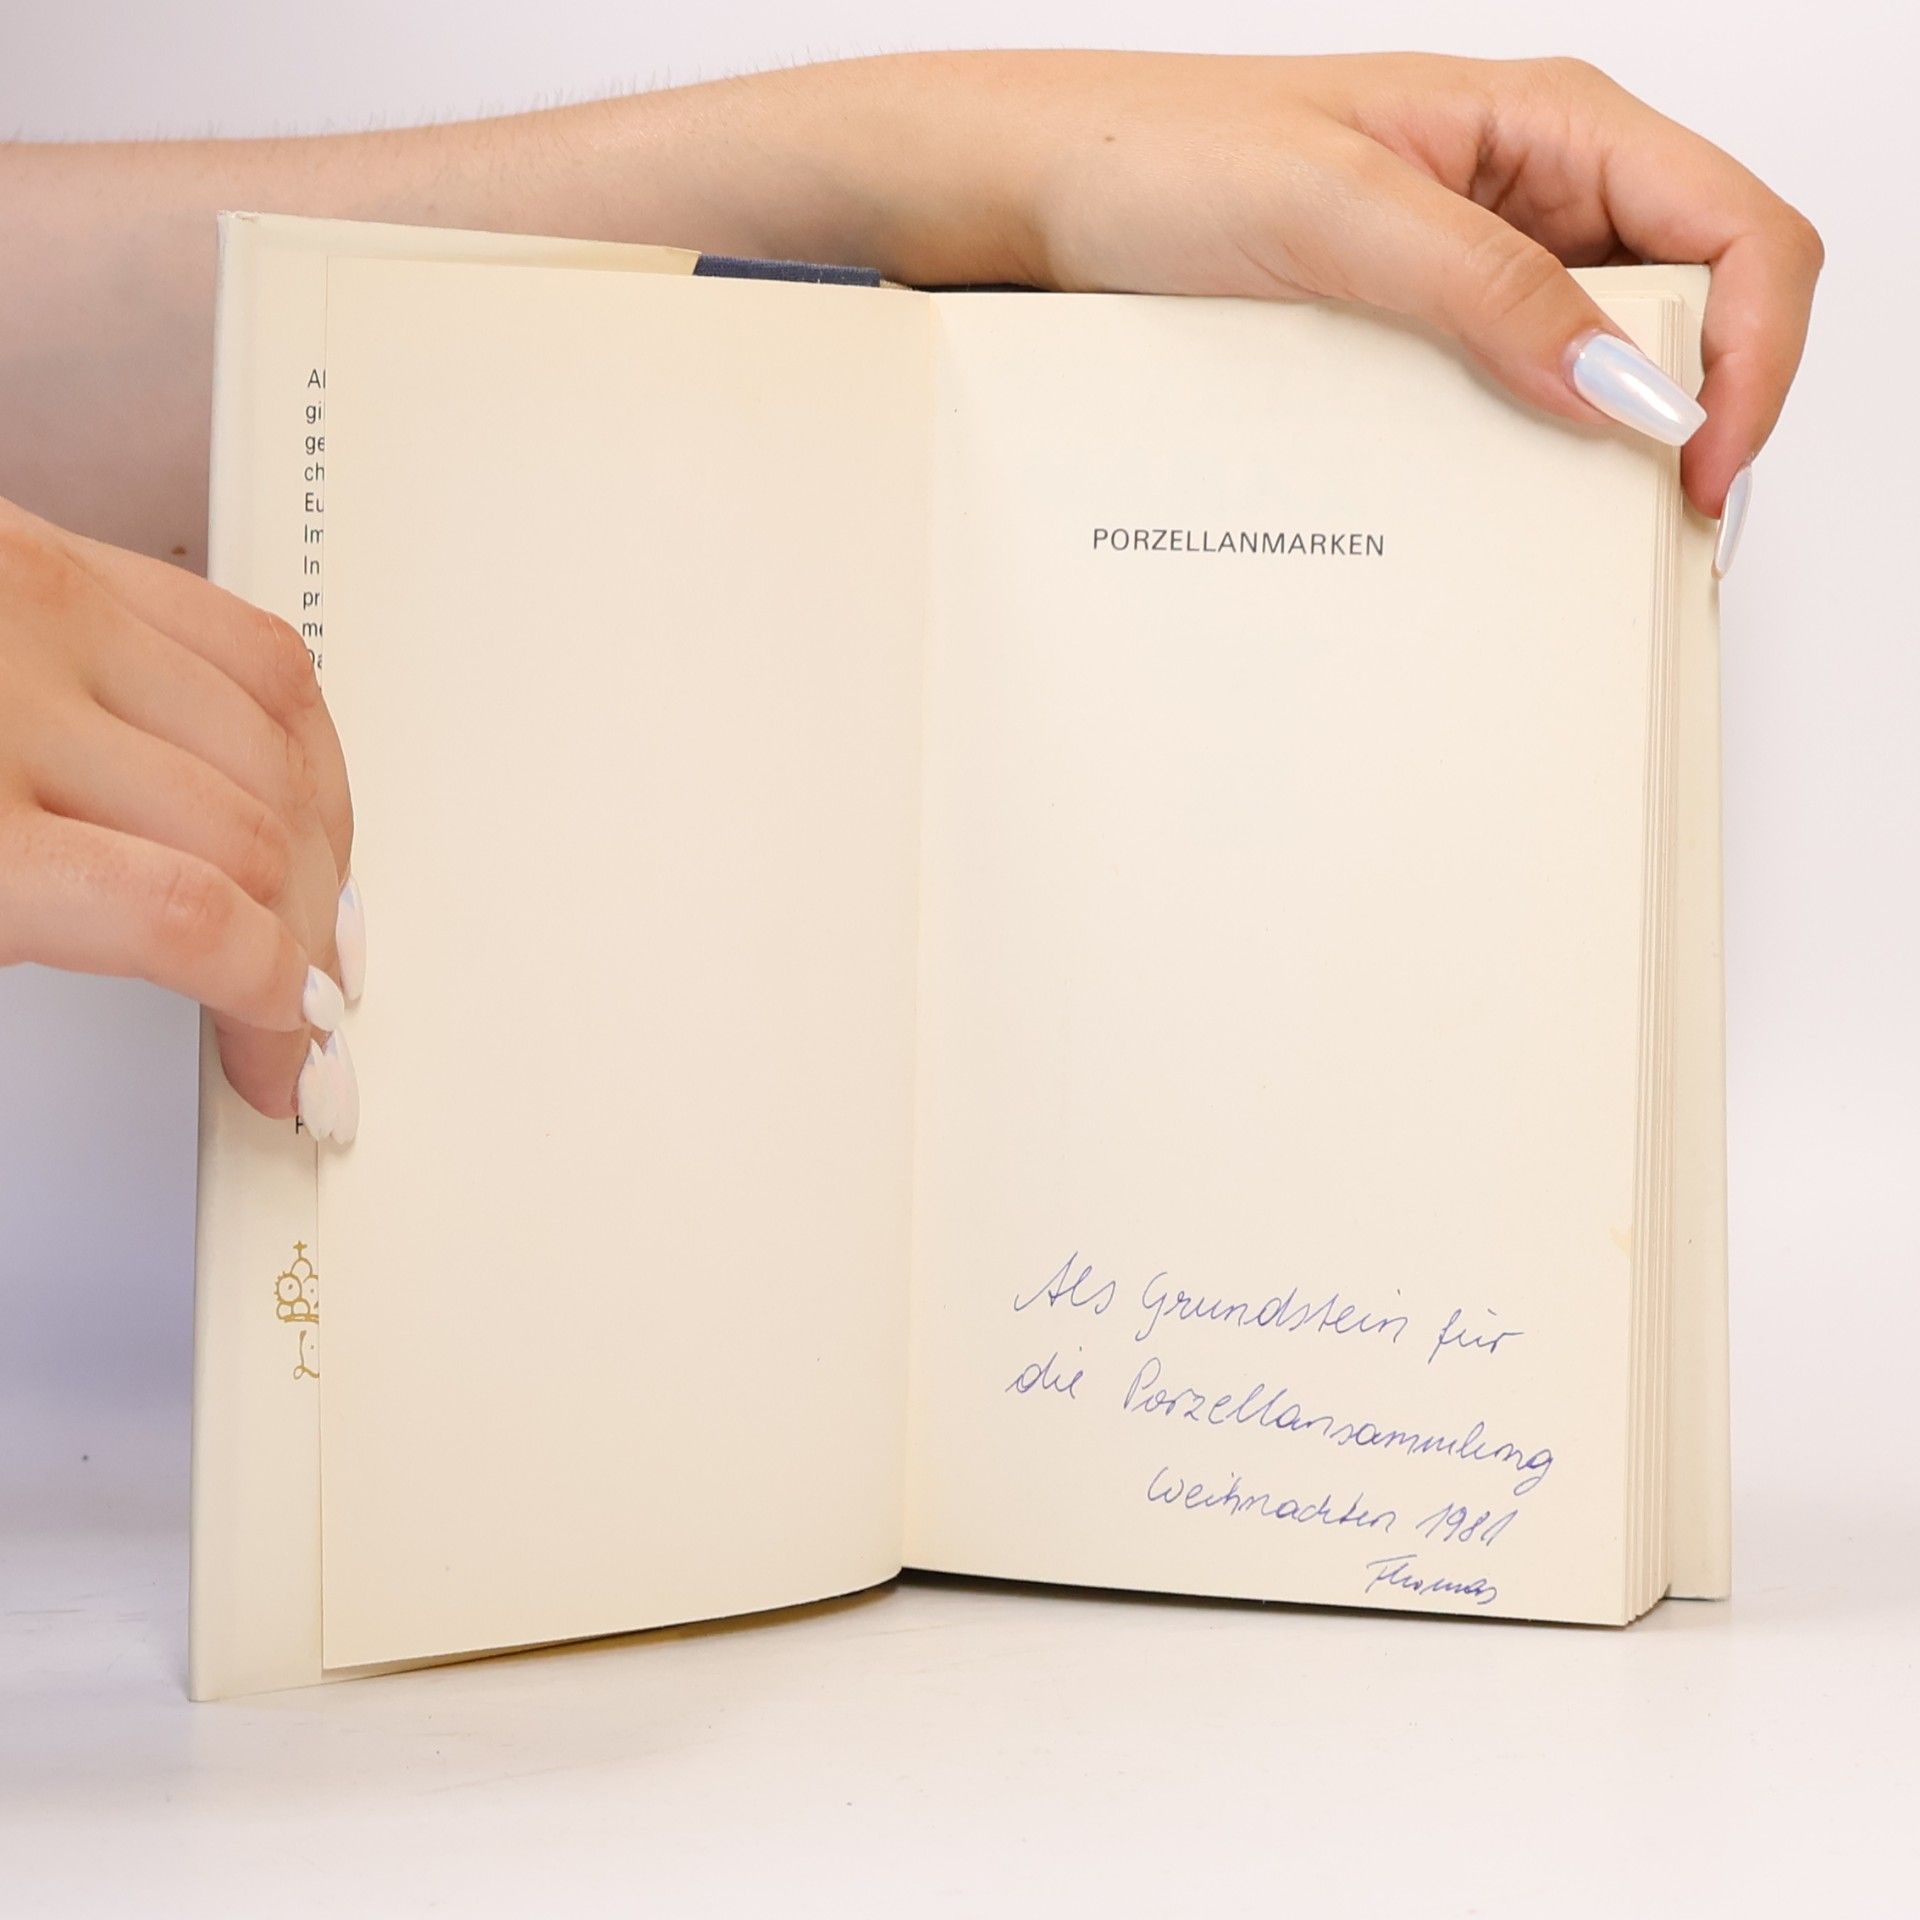 Al
gi
ge
ch
Eu
Im
In
pr
me
Da
PORZELLANMARKEN
Als Grundstein für
die Porzellansammlung
Weihnachten 1981
Thomas